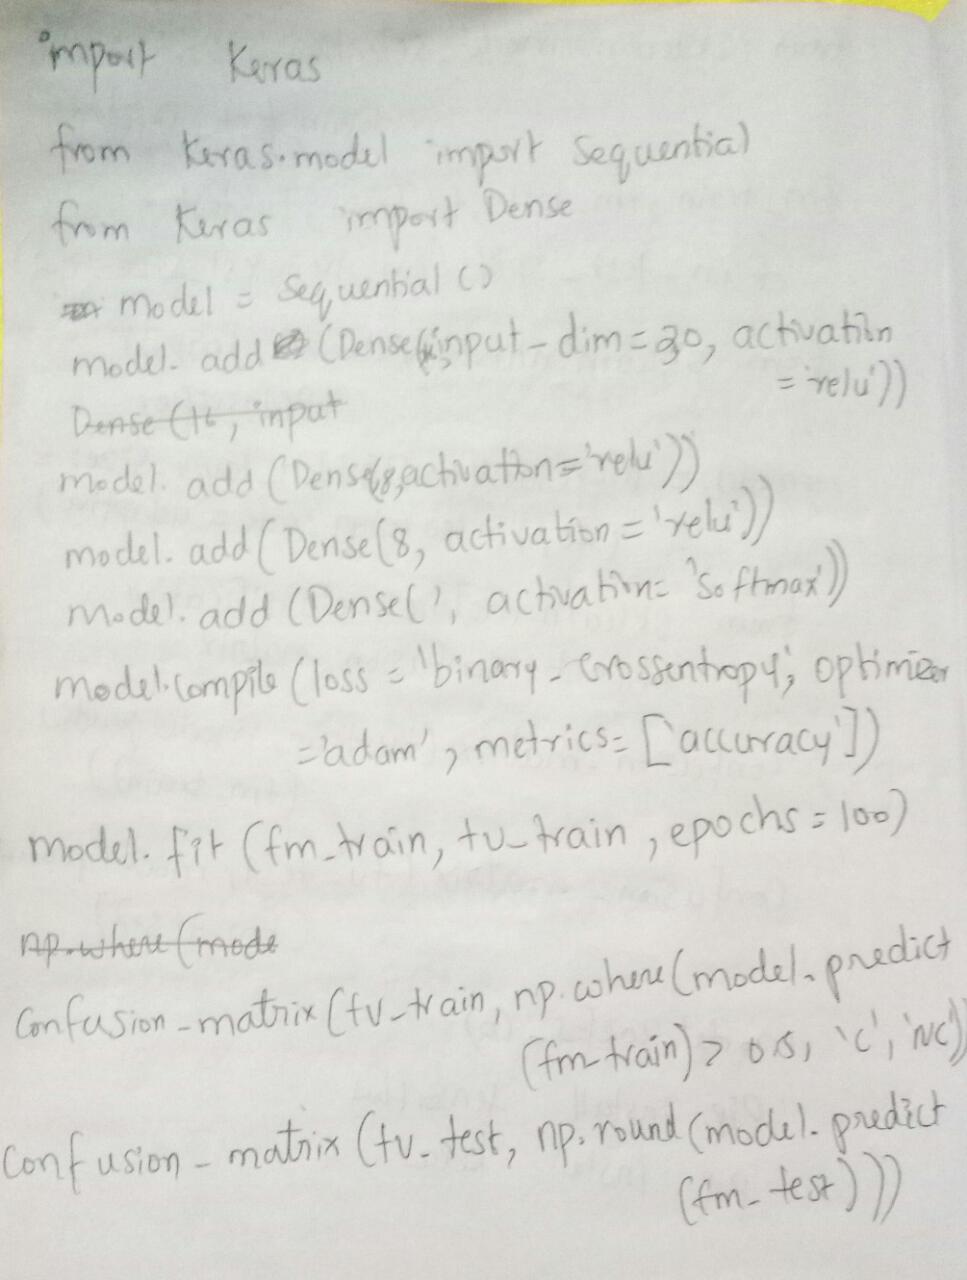 import Keras
from Keras.model import Sequential
from Keras import Dense
model = Sequential ()
model. add (Dense(input-dim=30, activation
= 'relu'))
Dense (16, input
model. add (Dense(8,activation='relu'))
model. add (Dense(8, activation = 'relu'))
model. add (Dense(1, activation= 'Softmax'))
model.compile (loss = 'binary_crossentropy', optimizer
='adam', metrics= ['accuracy'])
model. fit (fm_train, tv_train, epochs = 100)
np.where (mode
Confusion-matrix (tv_train, np.where (model.predict
(fm_train) > 0.5, 'c', 'NC')
Confusion-matrix (tv_test, np.round (model.predict
(fm_test)))